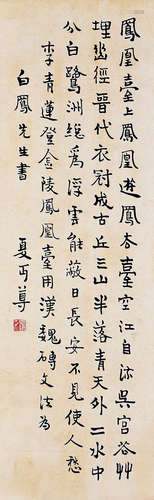 鳳凰臺上鳳凰遊鳳去臺空江自流吳宮花艸
埋幽徑晉代衣冠成古丘三山半落青天外二水中
分白鷺洲總為浮雲能蔽日長安不見使人愁
李青蓮登金陵鳳凰臺用漢魏磚文法為
白鳳先生書 夏丏尊